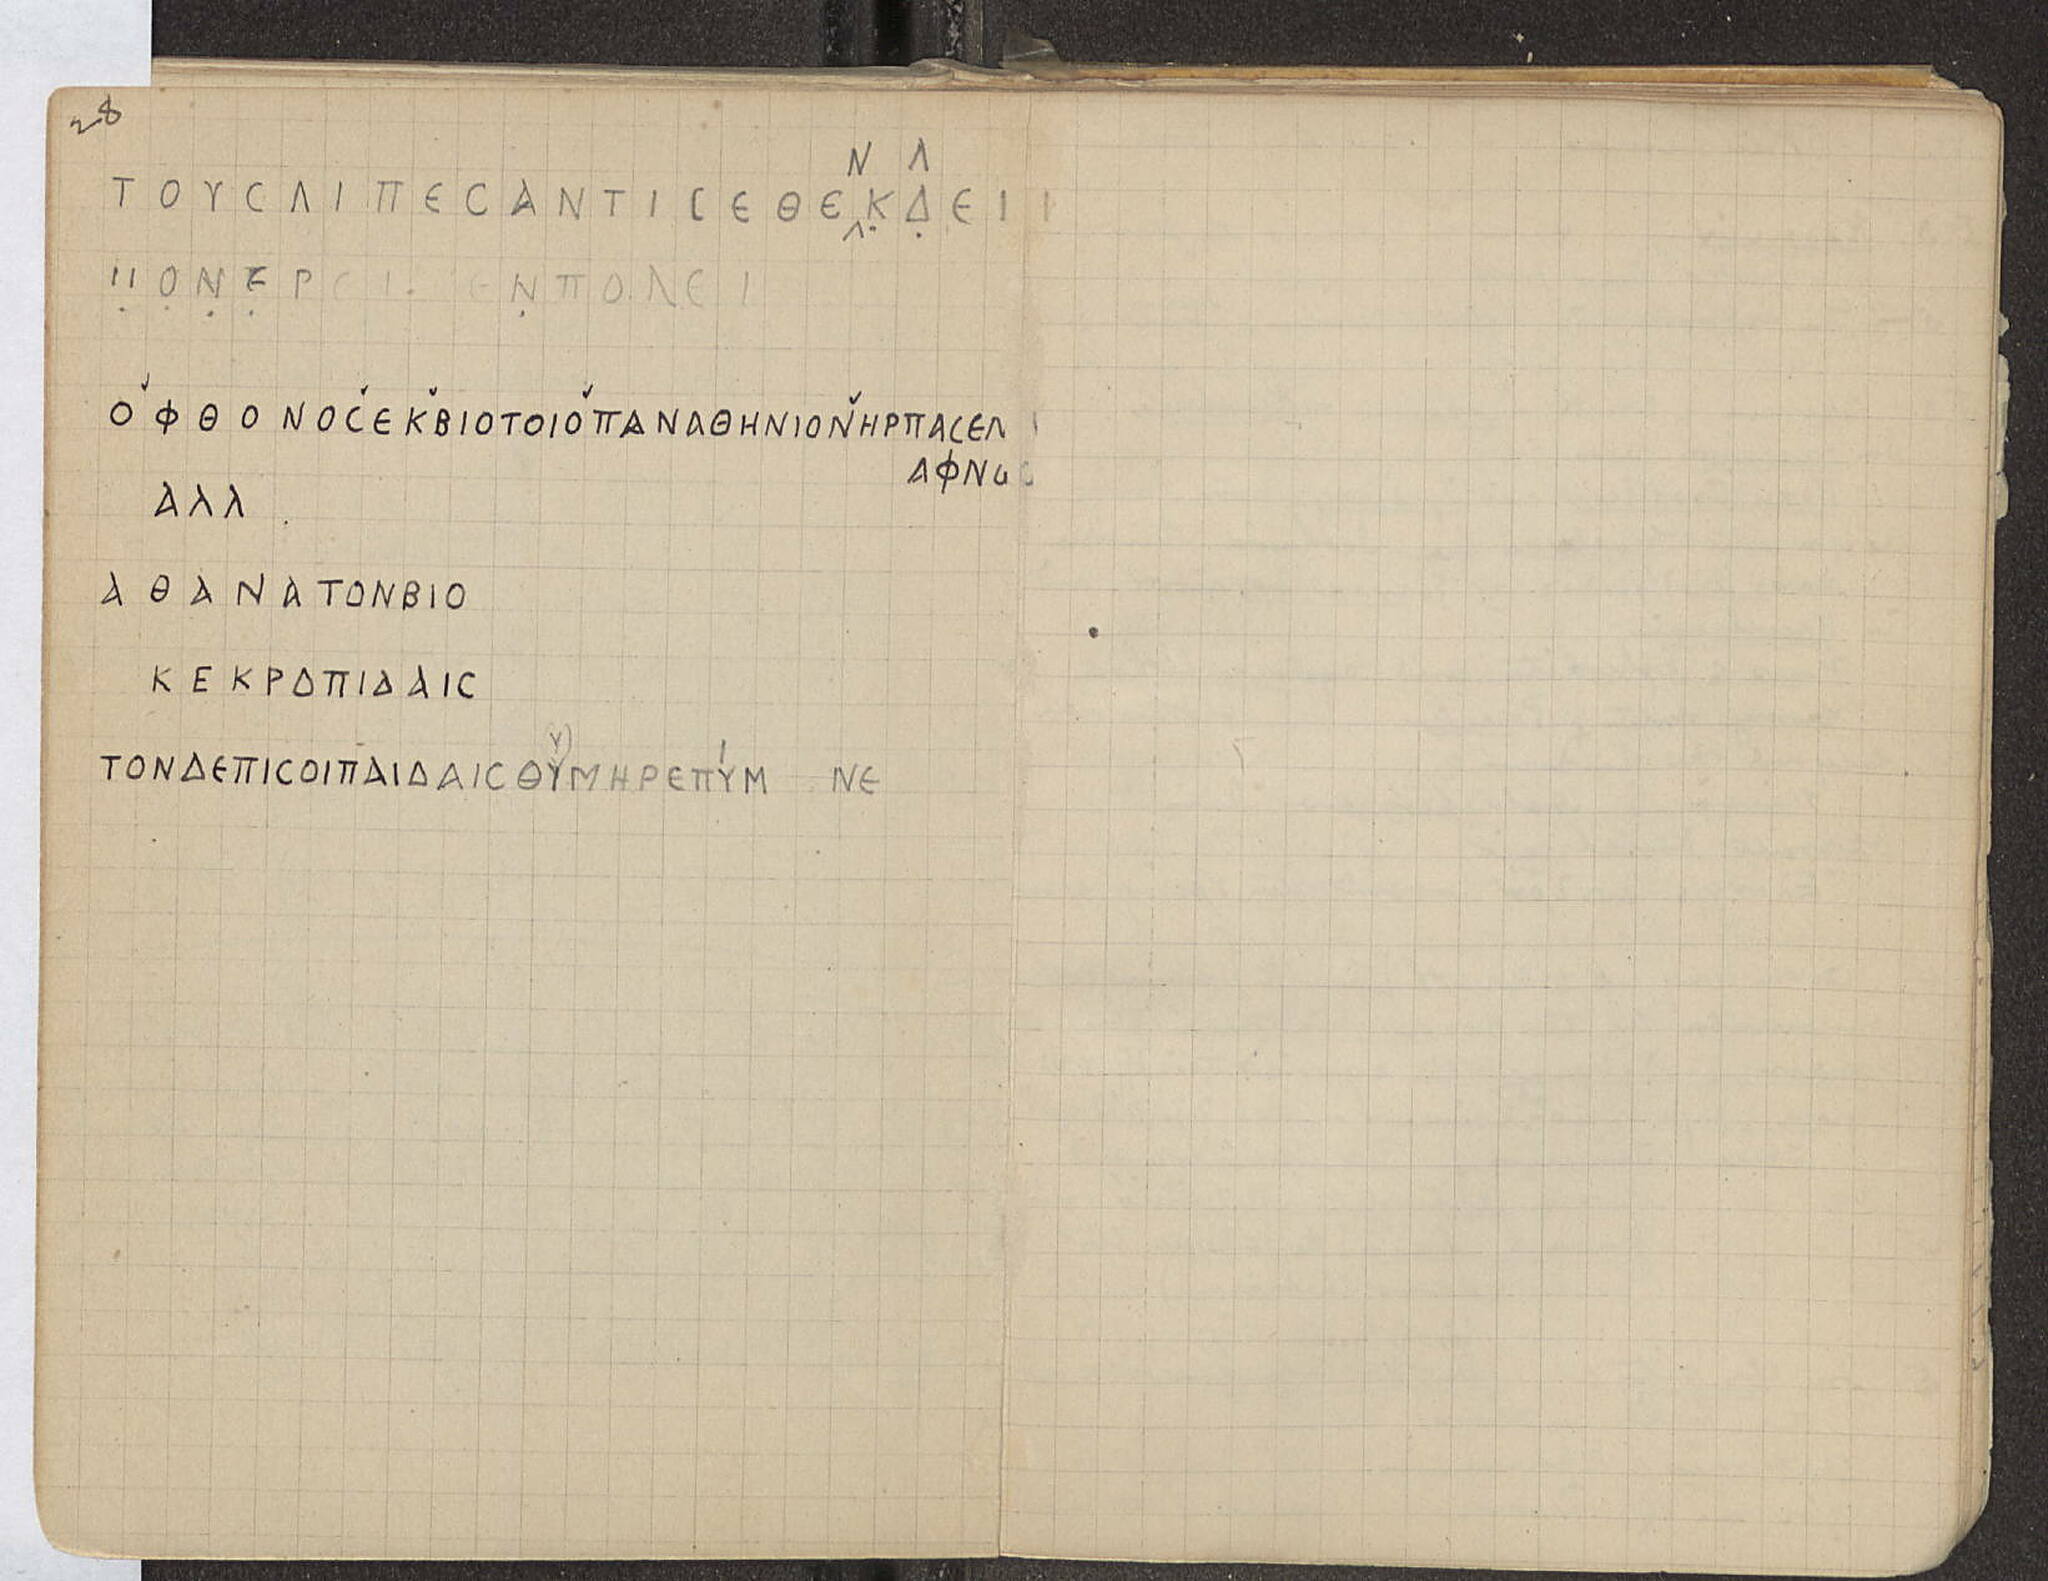 28
Ν Λ
ΤΟΥϹΛΙΠΕϹΑΝΤΙϹΕΘΕΚΔΕΙ
ΟΝΕΡ ΕΝΠΟΛΕΙ
ΟΦΘΟΝΟϹΕΚΒΙΟΤΟΙΟΠΑΝΑΘΗΝΙΟΝΗΡΠΑϹΕΝ
ΑΦΝω
ΑΛΛ
ΑΘΑΝΑΤΟΝΒΙΟ
ΚΕΚΡΟΠΙΔΑΙϹ
ΤΟΝΔΕΠΙϹΟΙΠΑΙΔΑΙϹΘΥΜΗΡΕΠΥΜ ΝΕ